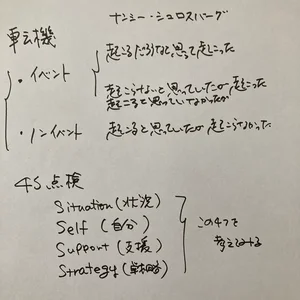 ナンシー・シュロスバーグ
転機
・イベント
起こるだろうなと思って起こった
起こらないと思っていたが起こった
起こると思っていなかったが
・ノンイベント
起こると思っていたが起こらなかった
4S点検
Situation(状況)
Self (自分)
Support(支援)
Strategy(戦略)
この4つを
考えてみる